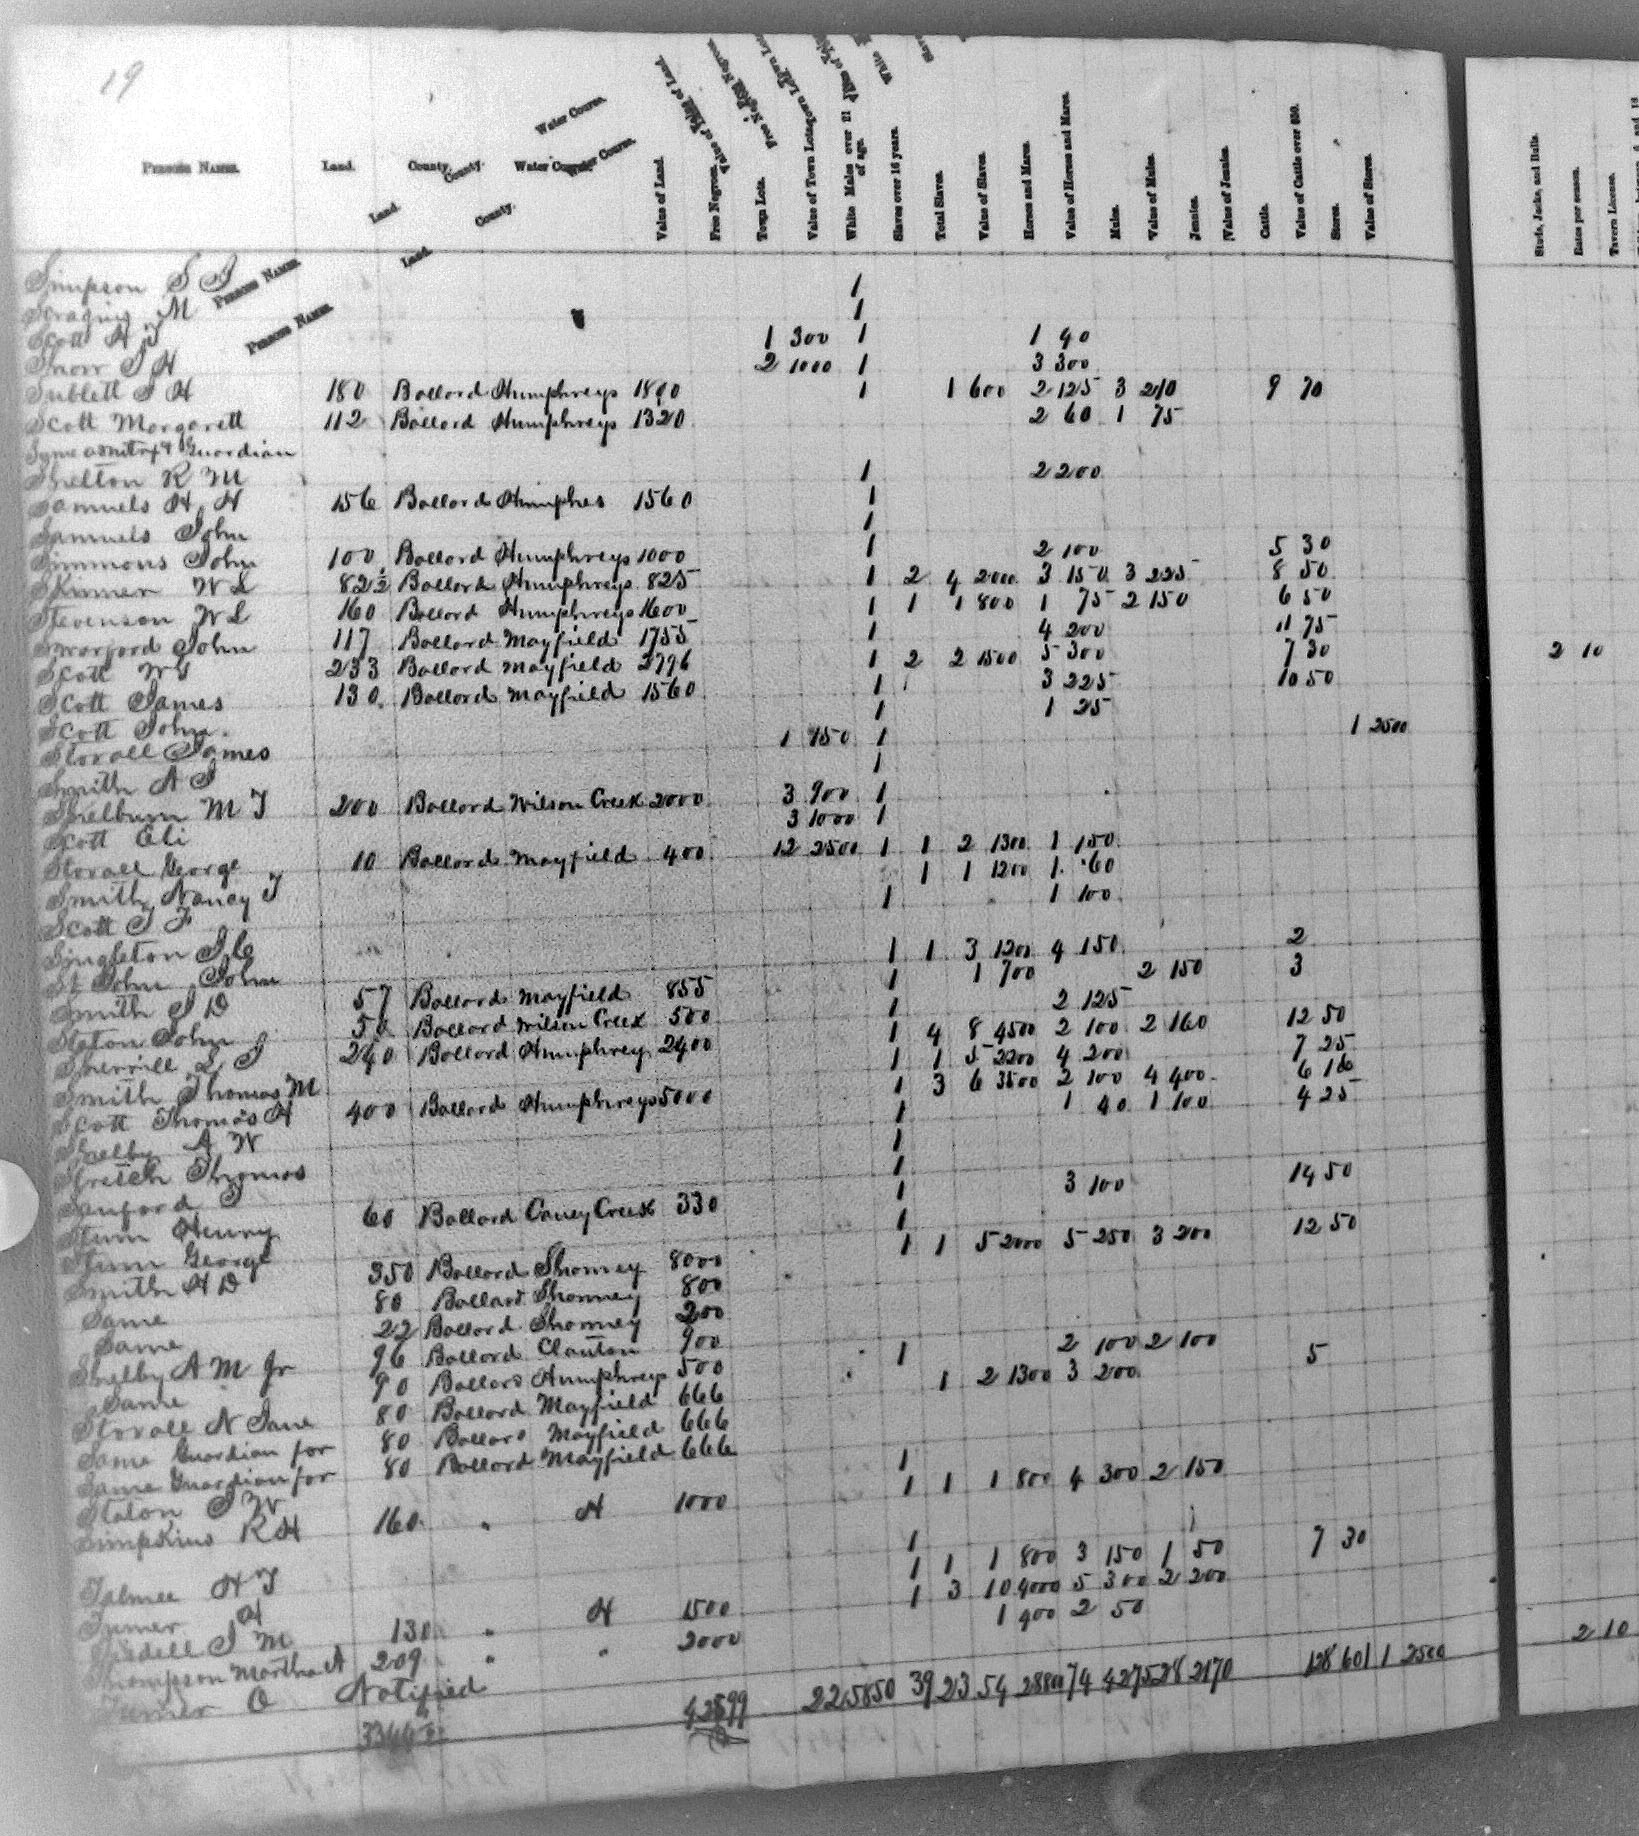 19
Persons Names. Land. County. Water Course. Value of Land. Free Negroes. Town Lots. Value of Town Lots. White Males over 21 of age. Slaves over 16 years. Total Slaves. Value of Slaves. Horses and Mares. Value of Horses and Mares. Mules. Value of Mules. Jennies. Value of Jennies. Cattle. Value of Cattle over $50. Stores. Value of Stores. Studs, Jacks, and Bulls. Rates per season. Tavern License.
Simpson S J 1
M 1
Scott H T 1 300 1 1 40
J H 2 1000 1 3 300
Sublett J H 180 Ballard Humphreys 1800 1 1 600 2 125 3 210 9 70
Scott Margarett 112 Ballard Humphreys 1320 2 60 1 75
Same Guardian
Shelton R M 1 2 200
Samuels H H 156 Ballard Humphes 1560 1
Samuels John 1
Simmons John 100 Ballard Humphreys 1000 1 2 100 5 30
Skinner W L 82½ Ballard Humphreys 825 1 2 4 2000 3 150 3 225 8 50
Stevenson W L 160 Ballard Humphreys 1600 1 1 1 800 1 75 2 150 6 50
John 117 Ballard Mayfield 1755 1 4 200 11 75
Scott W G 233 Ballard Mayfield 2796 1 2 2 1500 5 300 7 30 2 10
Scott James 130 Ballard Mayfield 1560 1 3 225 10 50
Scott John 1 1 25
Stovall James 1 750 1 1 2500
Smith A J 1
Shelburn M T 200 Ballard Wilson Creek 2000 3 900 1
Scott Eli 3 1000 1
Stovall George 10 Ballard Mayfield 400 12 2500 1 1 2 1300 1 150
Smith Nancy T 1 1 1200 1 60
Scott J F 1 1 100
Singleton J C
St John John 1 1 3 1200 4 150 2
Smith J D 57 Ballard Mayfield 855 1 1 700 2 150 3
Staton John 50 Ballard Wilson Creek 500 1 2 125
Sherrill L J 240 Ballard Humphrey 2400 1 4 8 4500 2 100 2 160 12 50
Smith Thomas M 1 1 5 2200 4 200 7 25
Scott Thomas H 400 Ballard Humphreys 5000 1 3 6 3500 2 100 4 400 6 16
Shelby A W 1 1 40 1 100 4 25
Thomas 1
Sanford J 1
Stum Henry 60 Ballard Caney Creek 330 1 3 100 14 50
Stum George 1
Smith H D 350 Ballard Shonney 8000 1 1 5 2000 5 250 3 200 12 50
Same 80 Ballard Shonney 800
Same 22 Ballard Shonney 200
Shelby A M Jr 96 Ballard Clanton 900 1 2 100 2 100 5
Same 90 Ballard Humphreys 500
Stovall N Jane 80 Ballard Mayfield 666 1 2 1300 3 200
Same Guardian for 80 Ballard Mayfield 666
Same Guardian for 80 Ballard Mayfield 666
Staton J W 1
Simpkins R H 160 " H 1000 1 1 1 800 4 300 2 150
H T 1
Turner H 1 1 1 800 3 150 1 50 7 30
J M 130 " H 1500 1 3 10 4000 5 300 2 200
Thompson Martha A 209 " " 2000 1 900 2 50
Turner O Notified 2 10
42599 22 5850 39 23 54 28800 74 4275 28 2170 128 601 1 2500